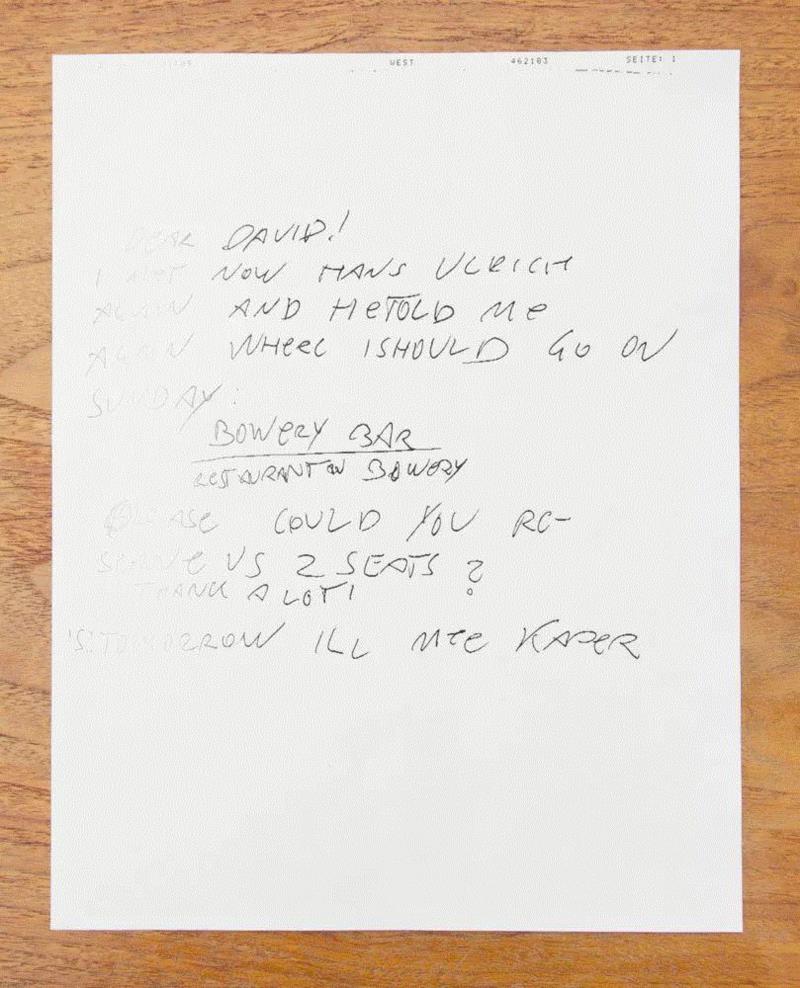 WEST 462103 SEITE: 1
DEAR DAVID!
I MET NOW HANS ULRICH
AGAIN AND HE TOLD ME
AGAIN WHERE I SHOULD GO ON
SUNDAY:
BOWERY BAR
RESTAURANT ON BOWERY
PLEASE COULD YOU RE-
SERVE US 2 SEATS?
THANK A LOT!
TOMORROW ILL KAPER